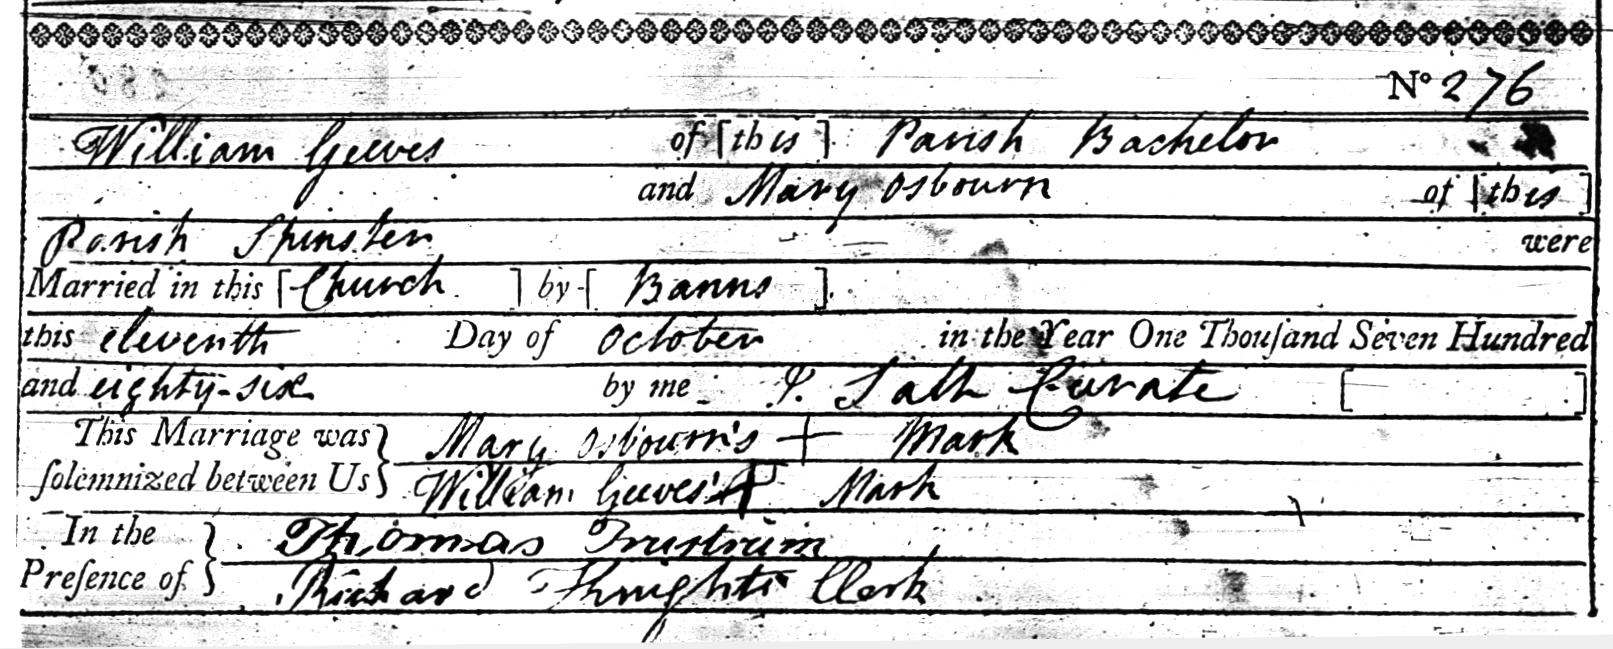 No 276
William Geeves of [this] Parish Bachelor
and Mary Osbourn of [this]
Parish Spinster were
Married in this [Church] by [Banns].
this eleventh Day of October in the Year One Thouſand Seven Hundred
and eighty-six by me Curate [ ]
This Marriage was } Mary Osbourn's + Mark
ſolemnized between Us } William Geeves's Mark
In the } Thomas Trustrum
Preſence of } Richard Clerk